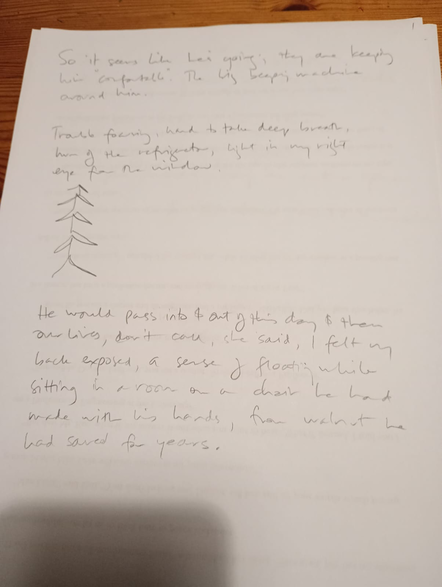 So it seems like he's going, they are keeping
him "comfortable" The big beeping machine
around him.
Trouble focusing, hard to take deep breath,
hum of the refrigerator, light in my right
eye from the window.
He would pass into & out of this day & then
our lives, don't call, she said, I felt my
back exposed, a sense of floating while
sitting in a room on a chair he had
made with his hands, from walnut he
had saved for years.